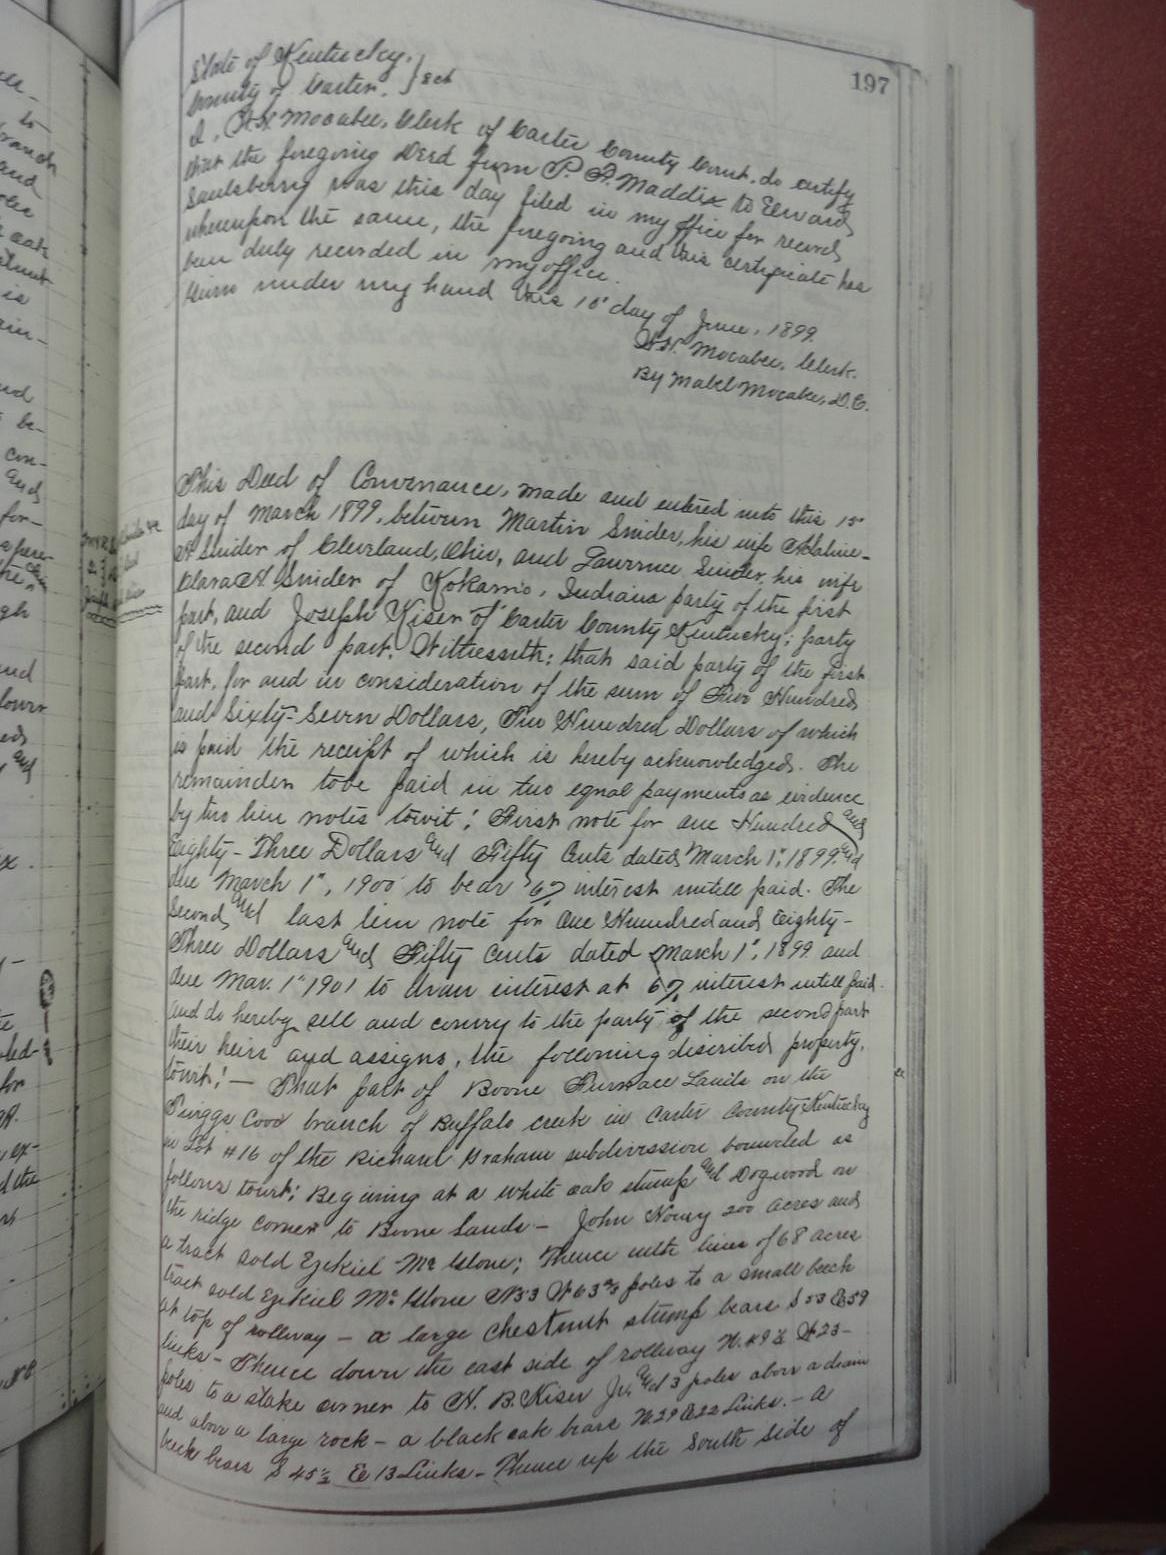 197
State of Kentucky,
County of Carter. } Sct
I, H. Mocabee, Clerk of Carter County Court, do certify
that the foregoing Deed from P. P. Maddix to Edward
Saulsberry was this day filed in my office for record
whereupon the same, the foregoing and this certificate has
been duly recorded in my office.
Given under my hand this 10" day of June, 1899.
Mocabee, Clerk.
By Mabel Mocabee, D.C.
This Deed of Convenance, made and entered into this 1st
day of March 1899, between Martin Snider, his wife Adaline
A Snider of Cleveland, Ohio, and Lawrence Snider, his wife
Clara A Snider of Kokamo, Indiana party of the first
part, and Joseph Kiser of Carter County Kentucky; party
of the second part. Witnesseth: that said party of the first
part, for and in consideration of the sum of Five Hundred
and Sixty-Seven Dollars, Two Hundred Dollars of which
is paid the receipt of which is hereby acknowledged. The
remainder to be paid in two equal payments as evidence
by two lien notes towit; First note for one Hundred and
Eighty-Three Dollars and Fifty Cents dated March 1", 1899. and
due March 1st, 1900 to bear 6% interest untill paid. The
Second and last lien note for One Hundred and Eighty-
Three Dollars and Fifty Cents dated March 1", 1899 and
due Mar. 1st 1901 to draw interest at 6% interest untill paid.
and do hereby sell and convey to the party of the second part
their heirs and assigns, the following discribed property,
towit:— That part of Boone Furnace Lands on the
Twiggs branch of Buffalo creek in Carter County Kentucky
in Lot #16 of the Richard Graham subdivission bounded as
follows towit; Begining at a white oak stump and Dogwood on
the ridge corner to Boone Lands - John 200 acres and
a tract sold Ezekiel McGlone; Thence with lines of 68 acres
tract sold Ezekiel McGlone N33 W63 poles to a small beech
at top of rollway - a large chestnut stump bears S53 E59
links - Thence down the east side of rollway N.49½ W23-
poles to a stake corner to H. B. Kiser Jr. and 3 poles above a drain
and above a large rock - a black oak bears N.29 E22 Links. - a
beech bears S 45½ E 13 Links - Thence up the South side of